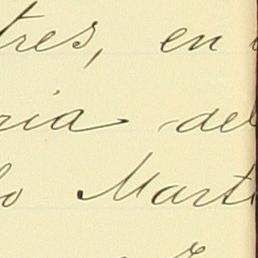 tres, en
ria del
lo Mart